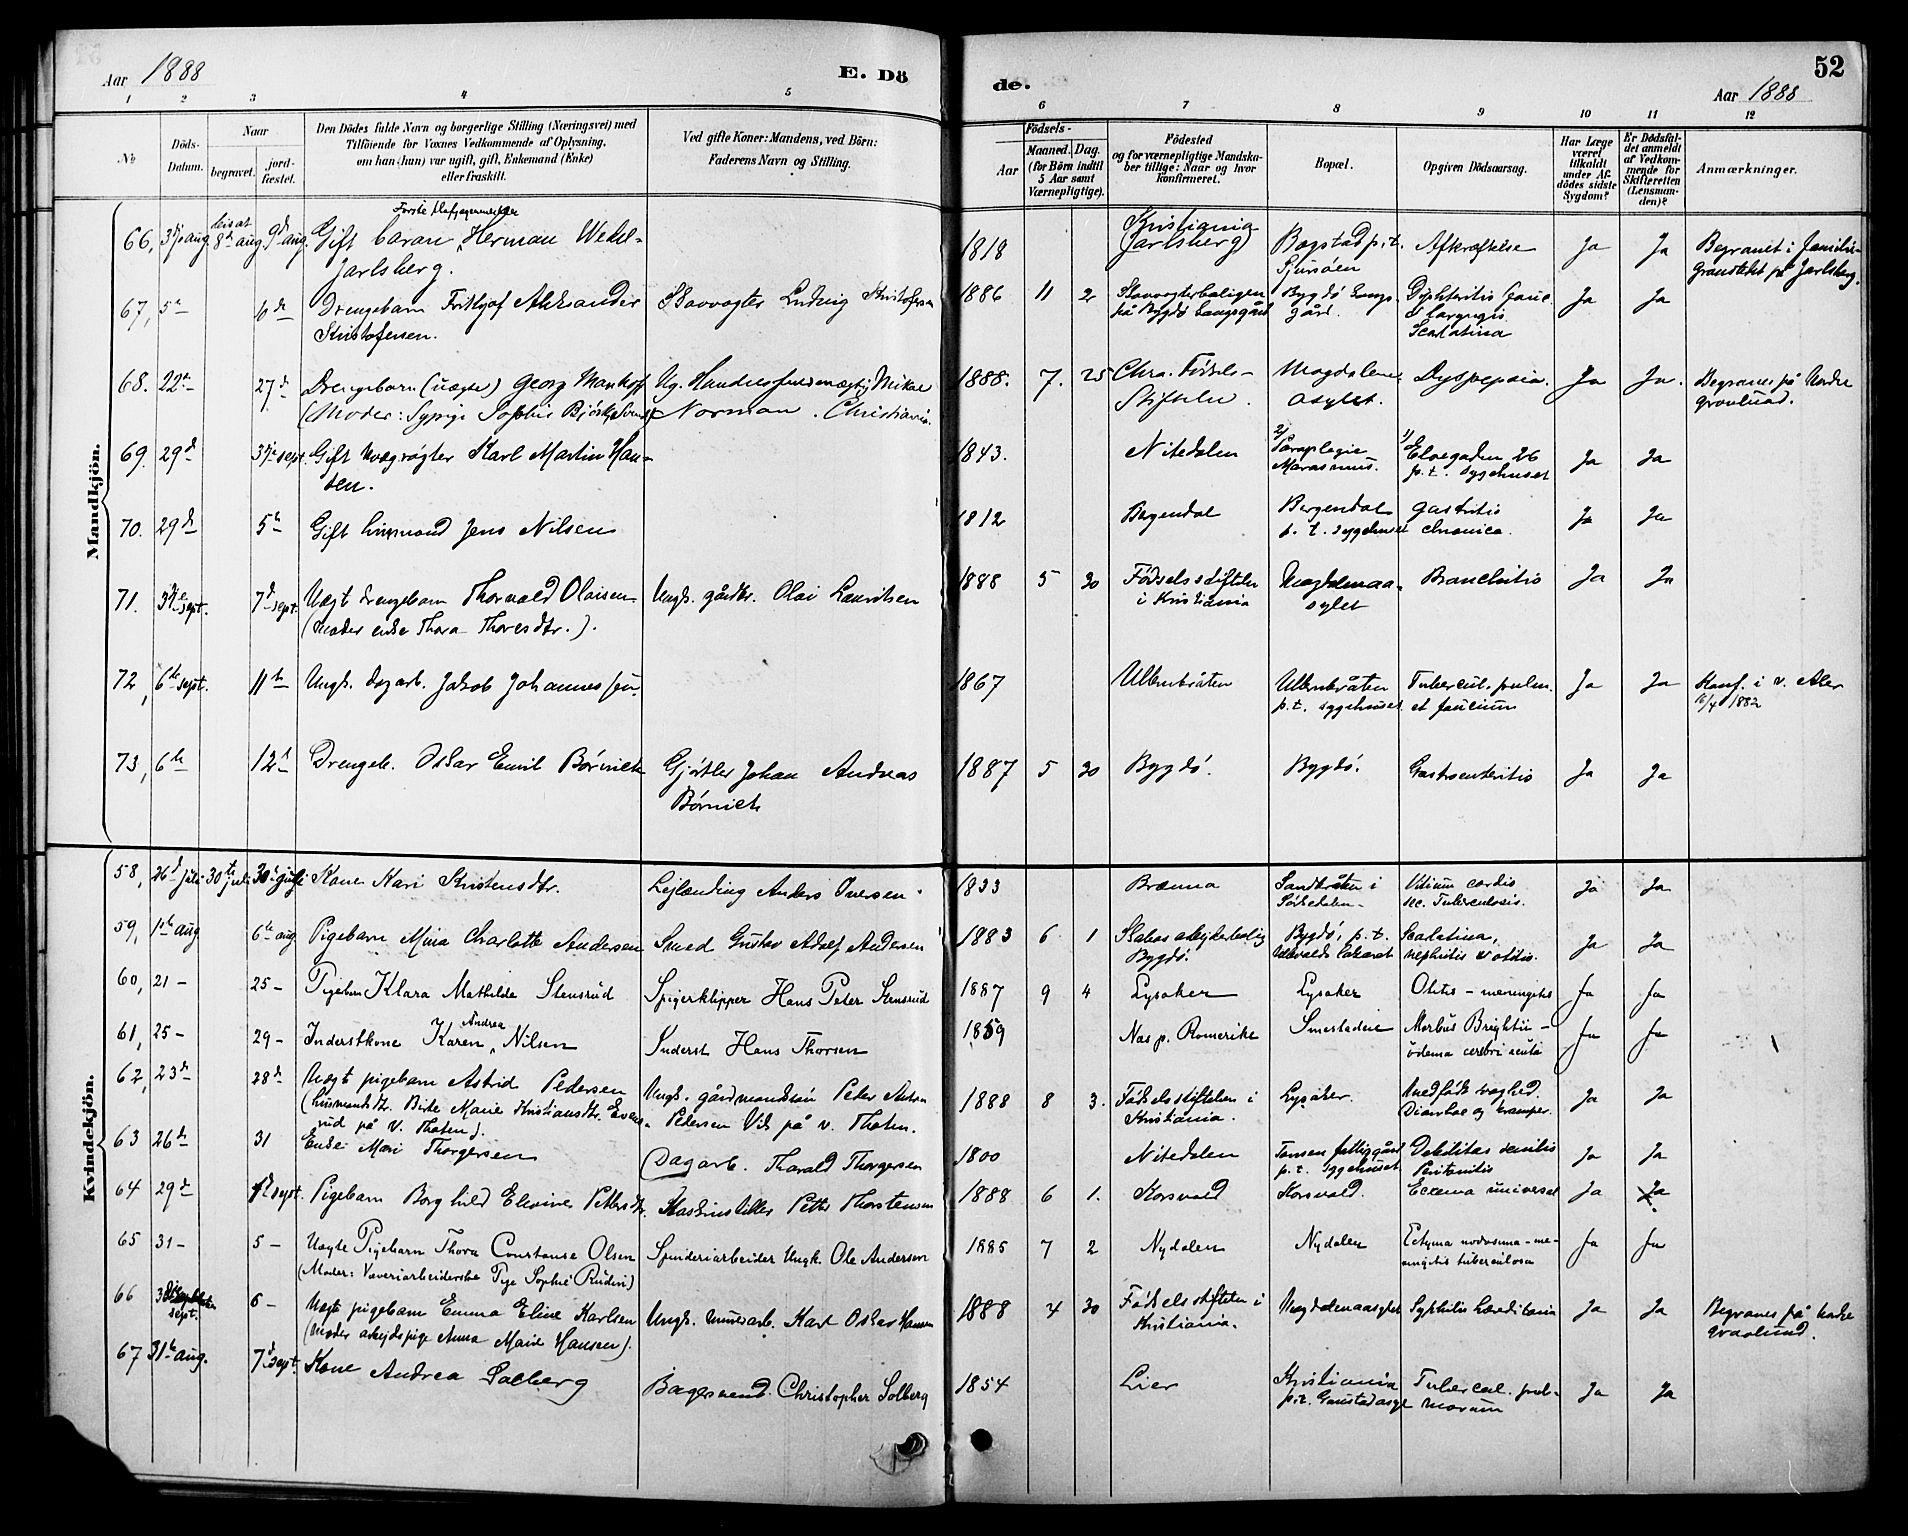 Aar 1888
E. Dö
de.
52
Aar 1888
1 2 3 4 5 6 7 8 9 10 11 12
No
Döds-Datum.
Naar
begravet.
jord-fæstet.
Den Dödes fulde Navn og borgerlige Stilling (Næringsvei) med
Tilföiende for Voxnes Vedkommende af Oplysning,
om han (hun) var ugift, gift, Enkemand (Enke)
eller fraskilt.
Ved gifte Koner: Mandens, ved Börn:
Faderens Navn og Stilling.
Födsels-
Aar
Maaned. Dag.
(for Börn indtil
5 Aar samt
Værnepligtige).
Födested
og for værnepligtige Mandska-
ber tillige: Naar og hvor
konfirmeret.
Bopæl.
Opgiven Dödsaarsag.
Har Læge
været
tilkaldt
under Af-
dödes sidste
Sygdom?
Er Dödsfal-
det anmeldt
af Vedkom-
mende for
Skifteretten
(Lensman-
den)?
Anmærkninger.
Mandkjön.
Første Hofjægermester
66, 3die aug. 8de aug. 9de aug. Gift baron Herman Wedel- 1818 Kristiania Bogstad p.t. Afkræftelse Ja Ja Begravet i familie-
Jarlsberg. (Jarlsberg) gravstedet på Jarlsberg.
67, 5te 6te Drengebarn Frithjof Aleksander Skovvogter Ludvig Kristofersen 1886 11 2 Skovvogterboligen Bygdø kongs- Dyphteritis fauc. Ja Ja
Kristofersen. på Bygdø kongsgård gård. & laryngis
Scarlatina
68. 22de 27de Drengebarn (uægte) Georg Ug. Handelsfuldmægtig 1888. 7. 25 Chra. Fødsels- Magdalene Dyspepsia. Ja Ja. Begraves på Nordre
(Moder: Sypige Sophie Norman. Christiania. Stiftelse. Asylet. gravlund.
69. 29de 3die sept. Gift Karl Martin Han- 1843. Nitedalen 2) Paraplegie 1) Elvegaden 26 Ja Ja
sen. Marasmus. p.t. sygehuset
70. 29de 5te Gift husmand Jens Nilsen 1812 Bergendal p.t. sygehuset gastritis chronica. Ja Ja
71. 3die sept. 7de sept. Uægt drengebarn Thorvald Olaisen Ungk. gårdbr. Olai Lauritsen 1888 5 30 Fødselsstiftelsen Magdalenaa- Bronchitis Ja Ja
(Moder enke Thora Thoresdtr.). i Kristiania sylet
72, 6te sept. 11te Ungk. dagarb. Jakob Johannessen. 1867 Ullernbråten Ullernbråten Tubercul. pulm. Ja Ja Konf. i v. Aker
p.t. sygehuset et faucium 1882
73, 6te 12te Drengeb. Oskar Emil Børnich Gjørtler Johan Andreas 1887 5 30 Bygdø. Bygdø. Gastroenteritis Ja Ja
Børnich
Kvindekjön.
58, 26de juli 30te juli 30te juli Kone Kari Kristensdtr. Leilænding Anders Iversen. 1833 Brænna Sandbråten i Vitium cordis Ja Ja
Sørkedalen sec. Tuberculosis.
59, 1ste aug 6te aug Pigebarn Mina Charlotte Andersen Smed Gustav Adolf Andersen 1883 6 1 Bygdø, p.t. Scarlatina, Ja Ja
Bygdø. Ullevolds lazaret nephritis & otitis.
60, 21 - 25 - Pigebarn Klara Mathilde Stensrud Spigerklipper Hans Peter Stensrud 1887 9 4 Lysaker Lysaker Otitis - meningitis Ja Ja
61, 25 - 29 - Inderstkone Karen Andrea Nilsen Inderst Hans Thorsen 1859 Nas p. Romerike Smestadeie Morbus Brightii - Ja Ja
ödema cerebri acuta
62, 23de 28de Uægt pigebarn Astrid Pedersen Ungk. gårdmandssøn Peter Anton 1888 8 3. Fødselsstiftelsen i Lysaker. Medfødt svaghed. Ja Ja
(husmandsdtr. Birte Marie Kristiansdtr. Evens- Pedersen på v. Thoten. Kristiania. Diarrhoe og kramper.
rud på V. Thoten).
63 26de 31 Enke Mari Thorgersen (Dagarb. Tharald Thorgersen 1800 Nitedalen Tonsen fattiggård Debilitas senilis Ja Ja
p.t. Sygehuset Peritonitis
64 29de 1ste sept. Pigebarn Borghild Elvine Pettersdtr. Petter Thorstensen 1888 6 1. Korsvold Korsvold. Eczema universal Ja Ja
65 31 - 5 - Uægte Pigebarn Thora Constanse Olsen Spinderiarbeider Ungk. Ole Andersen 1885 7 2 Nydalen Nydalen Ectyma - me- Ja Ja
(Moder: Væveriarbeiderske Pige Sophie Rudin) ningitis tuberculosa
66 3die sept. 6 - Uægt pigebarn Emma Eline Karlsen Ungk. murerarb. Karl Oskar Hansen 1888 4 30 Fødselsstiftelsen i Magdalenaasylet Syphilis hereditaria Ja Ja Begraves på Nordre
(Moder arbejdspige Anna Marie Hansen). Kristiania. Gravlund.
67 31te aug. 7de sept. Kone Andrea Solberg Bagersvend Christopher Solberg 1854 Lier Kristiania Tubercul. pul- Ja Ja
p.t. Gaustadasyl monum